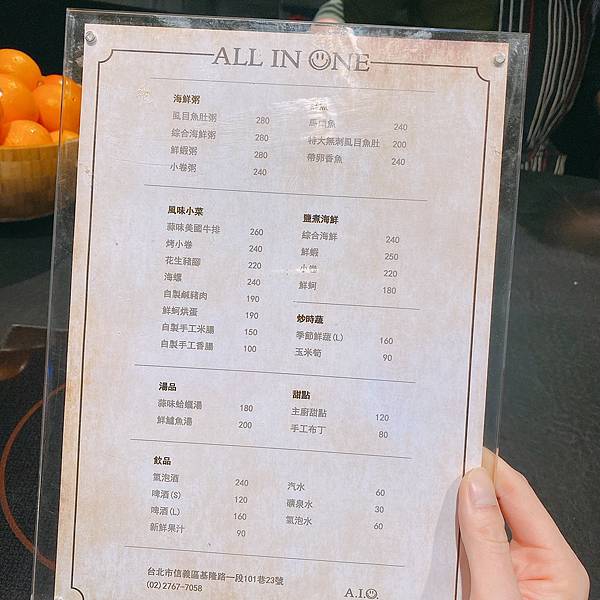 ALL IN ONE
海鮮粥
虱目魚肚粥 280
綜合海鮮粥 280
鮮蝦粥 280
小卷粥 240
240
特大無刺虱目魚肚 200
帶卵香魚 240
風味小菜
蒜味美國牛排 260
烤小卷 240
花生豬腳 220
海螺 240
自製鹹豬肉 190
鮮蚵烘蛋 190
自製手工米腸 150
自製手工香腸 100
鹽煮海鮮
綜合海鮮 240
鮮蝦 250
小卷 220
鮮蚵 180
炒時蔬
季節鮮蔬(L) 160
玉米筍 90
湯品
蒜味蛤蠣湯 180
鮮鱸魚湯 200
甜點
主廚甜點 120
手工布丁 80
飲品
氣泡酒 240
啤酒(S) 120
啤酒(L) 160
新鮮果汁 90
汽水 60
礦泉水 30
氣泡水 60
台北市信義區基隆路一段101巷23號
(02)2767-7058
A.I.O.